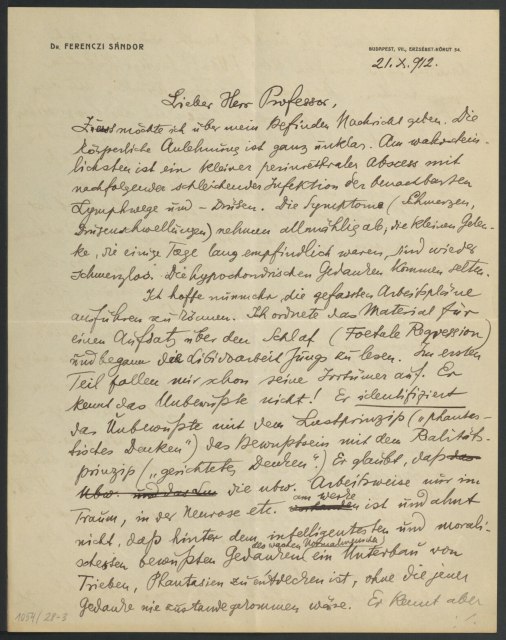 Dr. FERENCZI SÁNDOR
BUDAPEST, VII., ERZSÉBET-KÖRUT 54.
21.X.912.
Lieber Herr Professor,
möchte ich über mein Befinden Nachricht geben. Die
körperliche Anlehnung ist ganz unklar. Am wahrschein-
lichsten ist ein kleiner periurethraler Abscess mit
nachfolgender schleichender Infektion der benachbarten
Lymphwege und -Drüsen. Die Symptome (Schmerzen,
Drüsenschwellungen) nehmen allmählig ab, die kleinen Gelen-
ke, die einige Tage lang empfindlich waren, sind wieder
schmerzlos. Die hypochondrischen Gedanken kommen selten.
Ich hoffe nunmehr, die gefassten Arbeitspläne
ausführen zu können. Ich ordnete das Material für
einen Aufsatz über den Schlaf (Foetale Regression)
und begann die Libidoarbeit Jungs zu lesen. Im ersten
Teil fallen mir schon seine Irrtümer auf. Er
kennt das Unbewußte nicht! Er identifiziert
das Unbewußte mit dem Lustprinzip („phantas-
tisches Denken“) das Bewußtsein mit dem Realitäts-
prinzip („gerichtetes Denken“.) Er glaubt, daß das
Ubw. und die ubw. Arbeitsweise nur im
Traum, in der Neurose etc. am werke vorhanden ist und ahnt
nicht, daß hinter dem intelligentesten und morali-
schesten bewußten Gedanken des wachen Normalmenschen ein Unterbau von
Trieben, Phantasien zu entdecken ist, ohne die jener
Gedanke nie zustandegekommen wäre. Er kennt aber
1054/28-3
./.